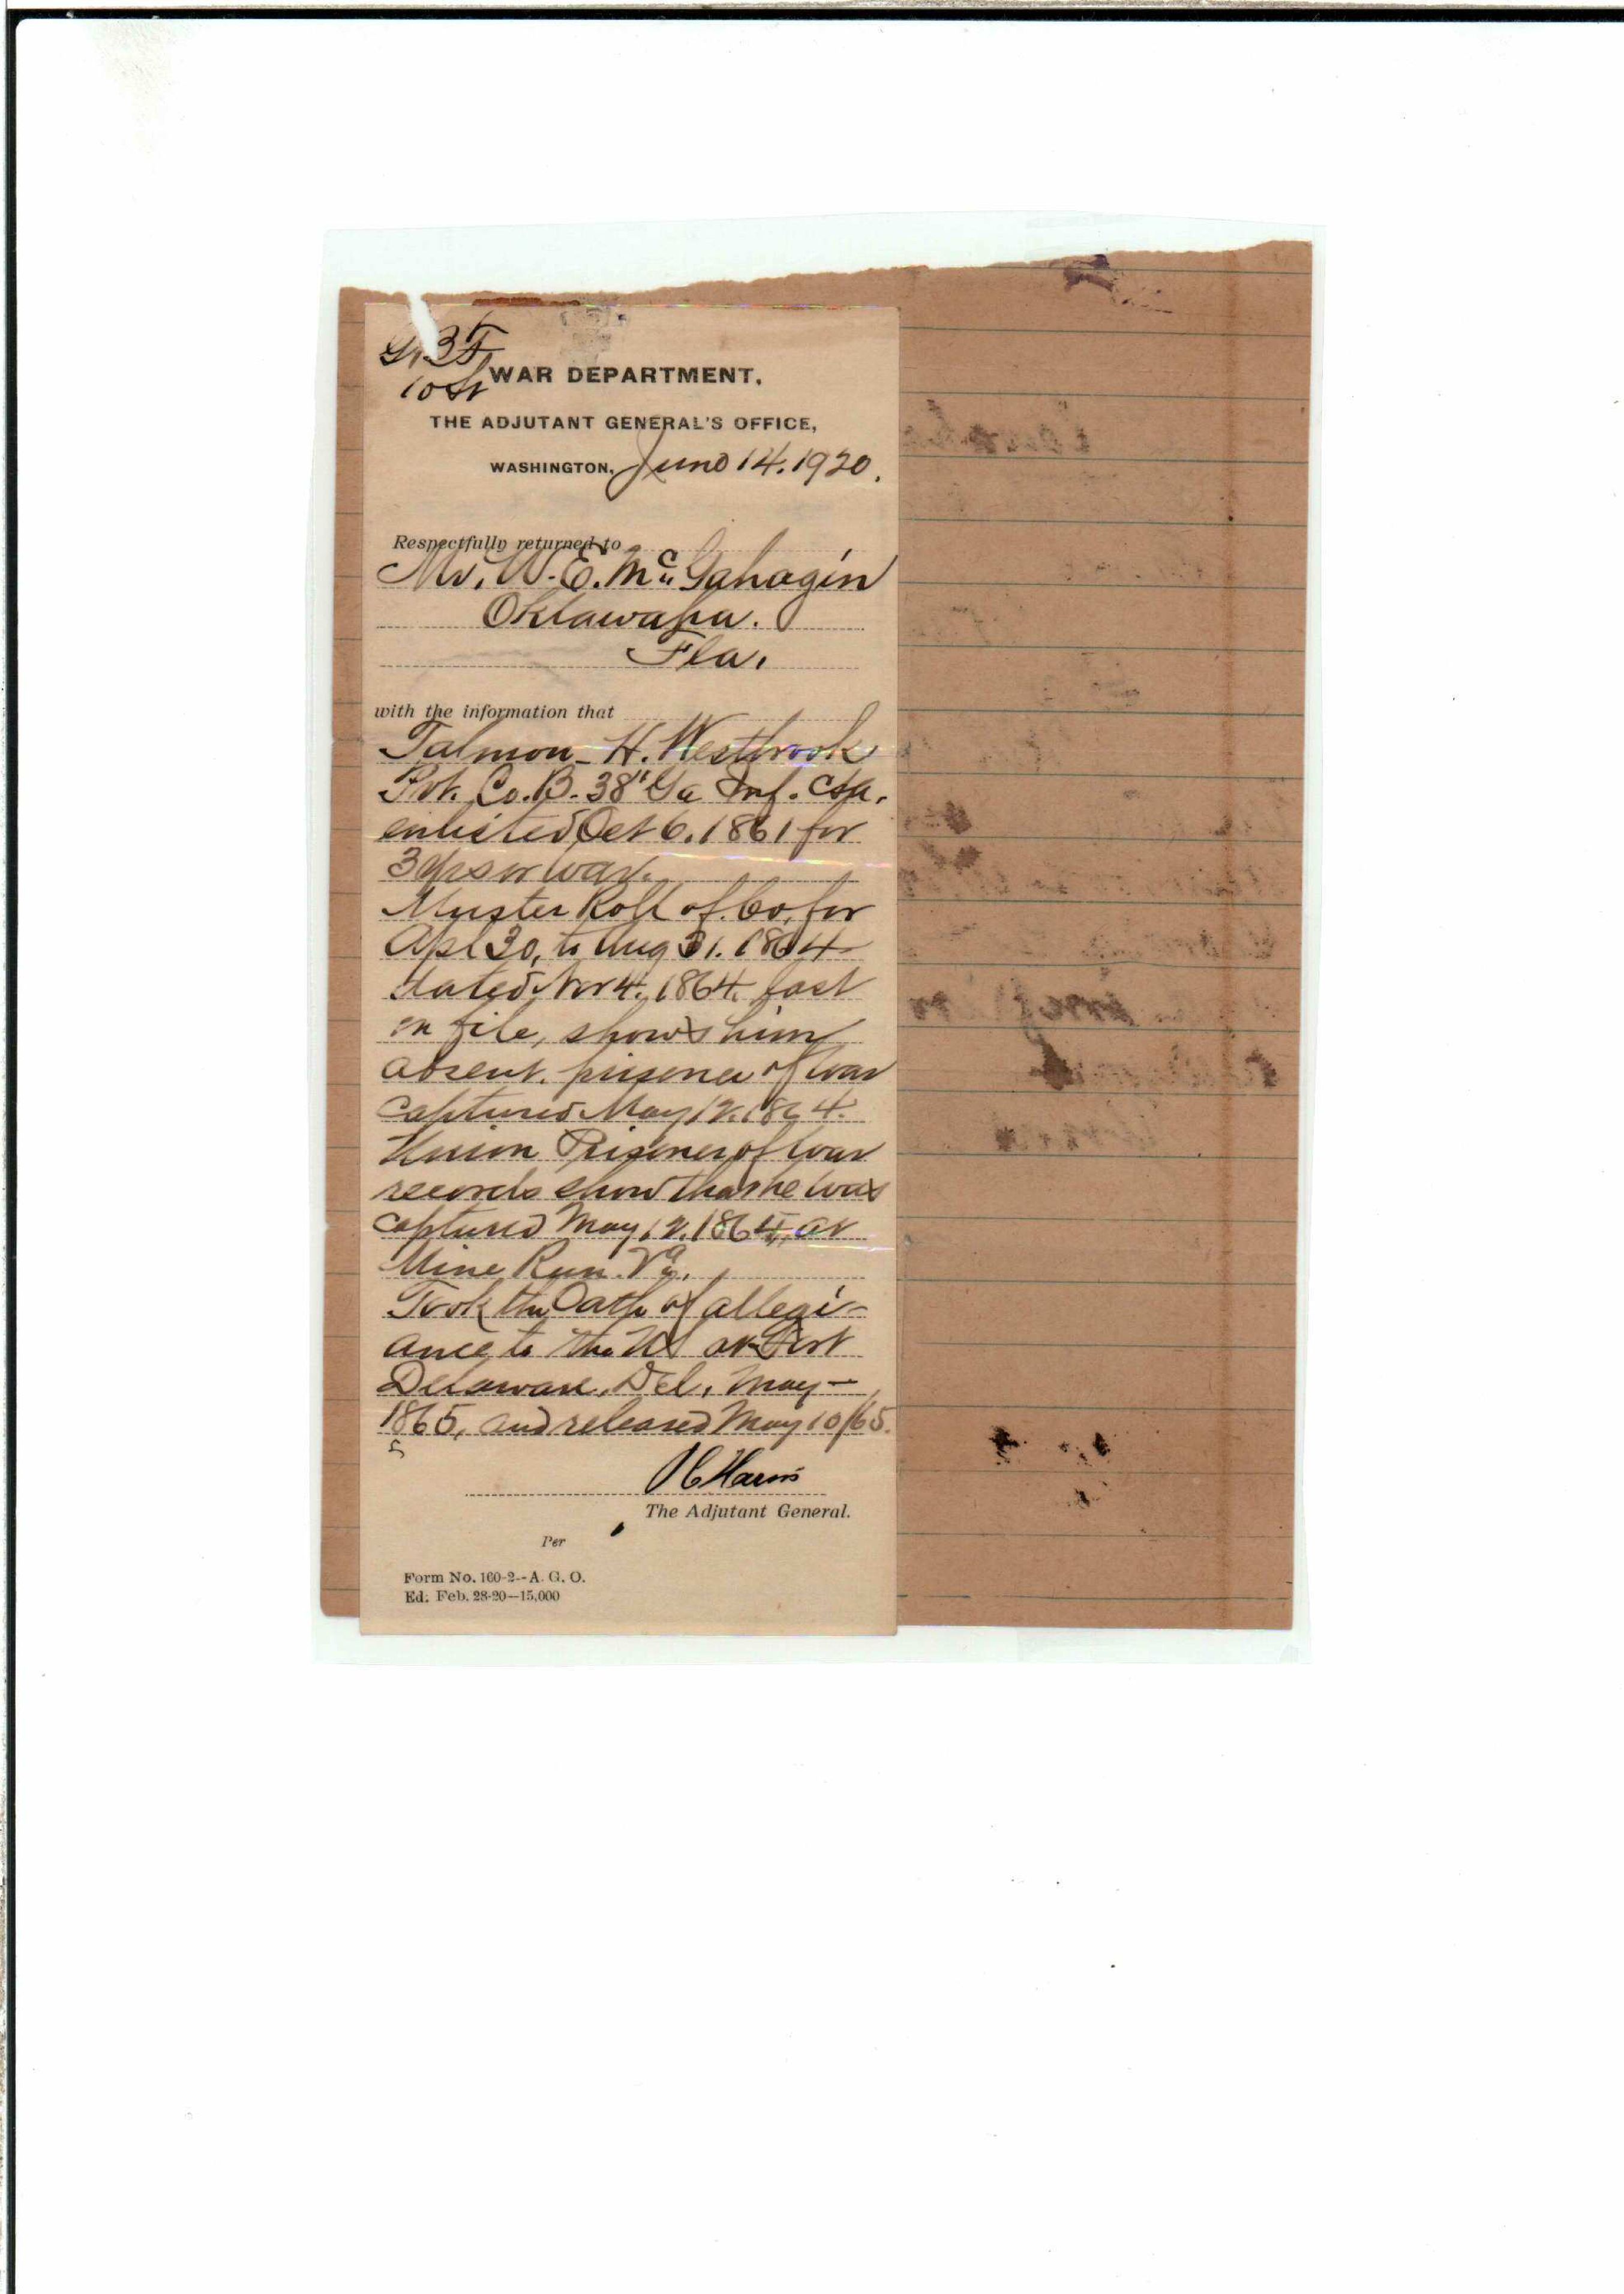 WAR DEPARTMENT,
THE ADJUTANT GENERAL'S OFFICE,
WASHINGTON, June 14. 1920.
Respectfully returned to
Mr. W. E. McGahagin
Oklawaha.
Fla.
with the information that
Talmon H. Westbrook
Pvt. Co. B. 38" Ga Inf. CSA.
enlisted Oct 6. 1861 for
3 yrs or war.
Muster Roll of Co. for
Apl 30, to Aug 31. 1864
dated Nov 4. 1864. last
on file, shows him
absent. prisoner of war
captured May 12. 1864.
Union Prisoner of war
records show that he was
captured May 12. 1864, at
Mine Run. Va.
Took the Oath of allegi-
ance to the US at Fort
Delaware, Del, May —
1865, and released May 10/65.
5
P C Harris
The Adjutant General.
Per
Form No. 160-2--A. G. O.
Ed. Feb. 28-20—15,000